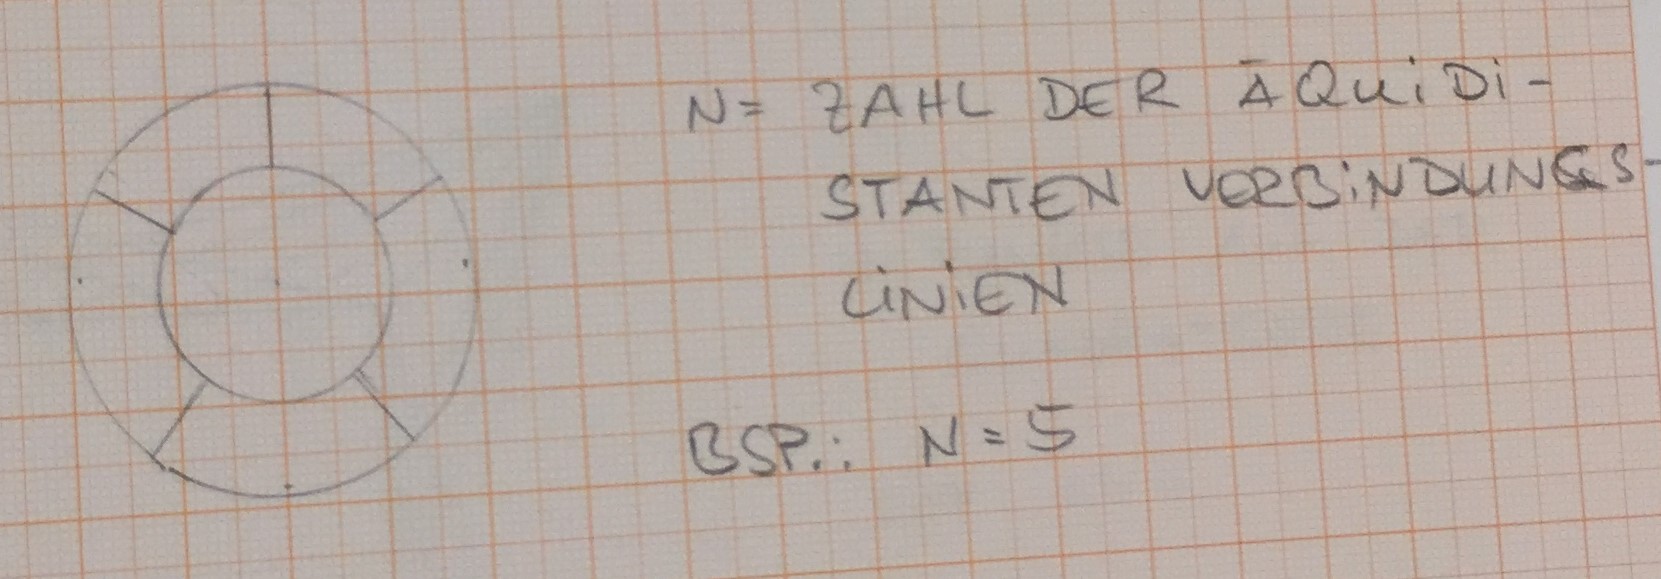 N= ZAHL DER ÄQUiDi-
STANTEN VERBiNDUNGS-
LiNiEN
BSP.: N=5